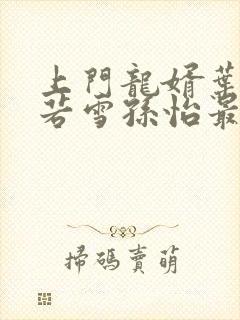 上門龍婿葉
若雪孫怡最
掃碼賣萌